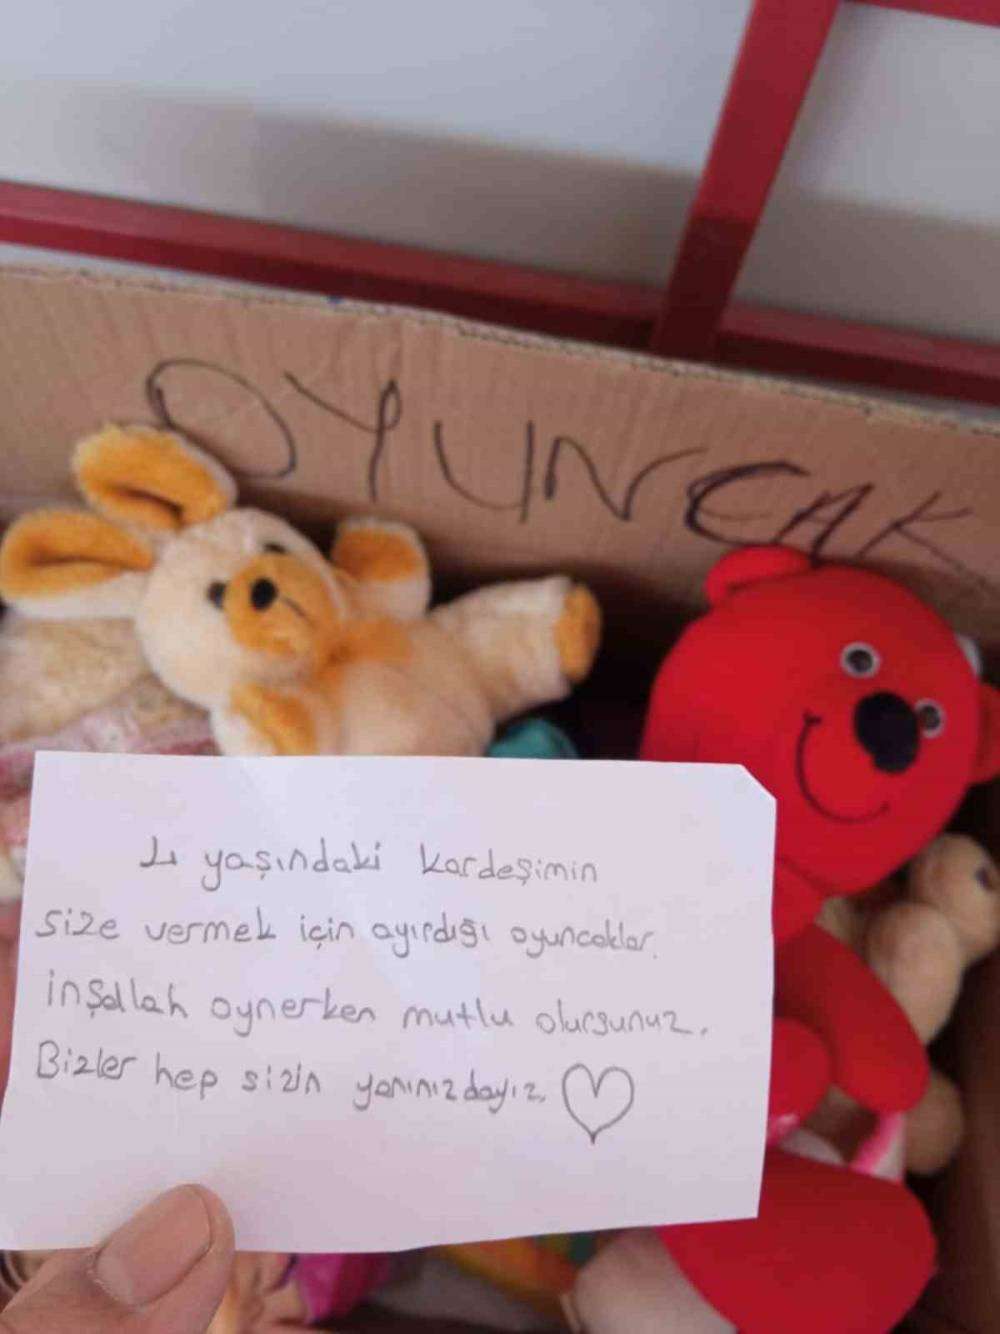 OYUNCAK
4 yaşındaki kardeşimin
size vermek için ayırdığı oyuncaklar.
inşallah oynerken mutlu olursunuz.
Bizler hep sizin yanınızdayız. ♡